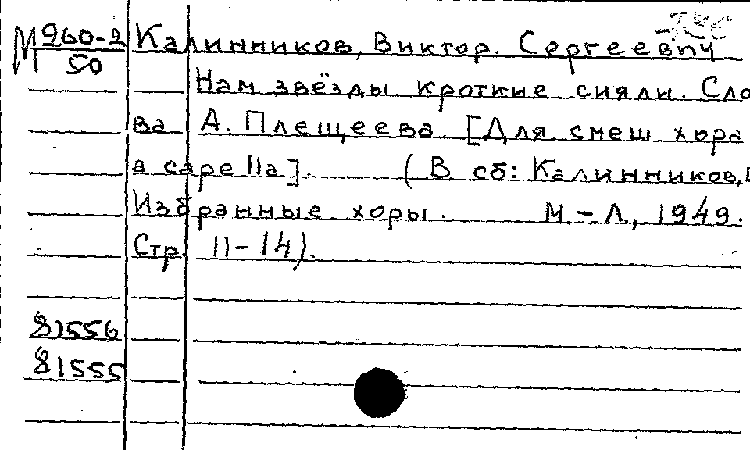 М 960-2
50
Калинников, Виктор. Сергеевич
Нам звёзды кроткие сияли. Сло
ва А. Плещеева. [Для смеш хора
a capella]. (В сб: Калинников,
Избранные хоры. М.-Л., 1949.
Стр. 11-14).
81556
81555